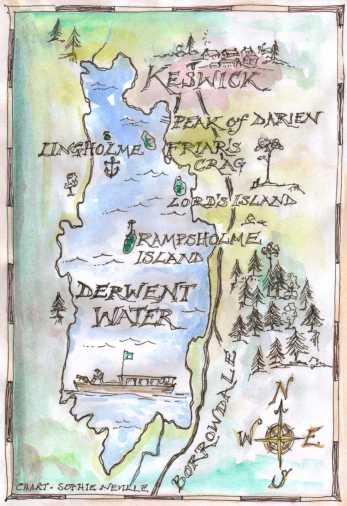 KESWICK
PEAK of DARIEN
LINGHOLME
FRIAR'S
CRAG
LORD'S ISLAND
RAMPSHOLME
ISLAND
DERWENT
WATER
BORROWDALE
N
W E
S
CHART - SOPHIE NEVILLE